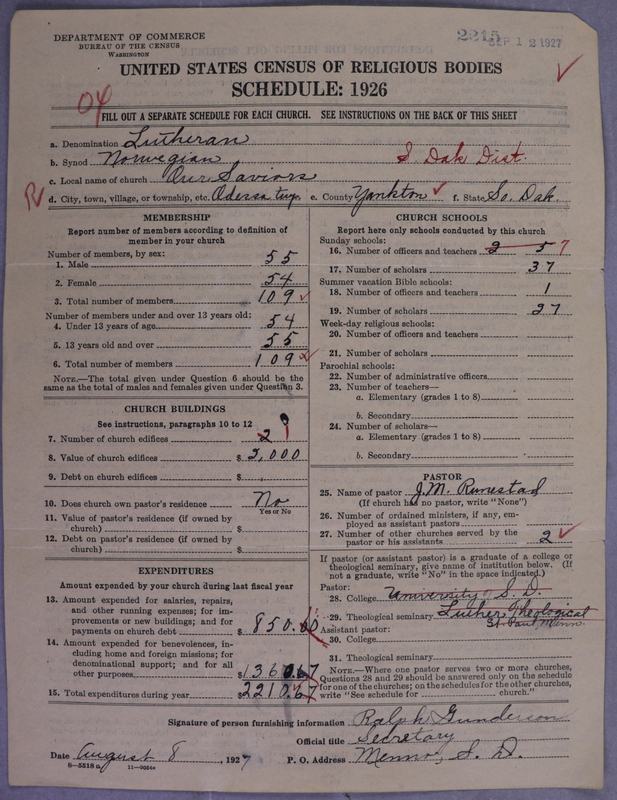 DEPARTMENT OF COMMERCE
BUREAU OF THE CENSUS
WASHINGTON
2215
SEP 12 1927
UNITED STATES CENSUS OF RELIGIOUS BODIES
SCHEDULE: 1926
04
FILL OUT A SEPARATE SCHEDULE FOR EACH CHURCH. SEE INSTRUCTIONS ON THE BACK OF THIS SHEET
a. Denomination Lutheran
b. Synod Norwegian S. Dak Dist.
c. Local name of church Our Saviors
d. City, town, village, or township, etc. Odessa twp. e. County Yankton f. State So. Dak.
MEMBERSHIP
Report number of members according to definition of
member in your church
Number of members, by sex:
1. Male 55
2. Female 54
3. Total number of members 109
Number of members under and over 13 years old:
4. Under 13 years of age 54
5. 13 years old and over 55
6. Total number of members 109
NOTE.—The total given under Question 6 should be the
same as the total of males and females given under Question 3.
CHURCH BUILDINGS
See instructions, paragraphs 10 to 12
7. Number of church edifices 2 1
8. Value of church edifices $ 3,000
9. Debt on church edifices $
10. Does church own pastor's residence No
Yes or No
11. Value of pastor's residence (if owned by
church) $
12. Debt on pastor's residence (if owned by
church) $
EXPENDITURES
Amount expended by your church during last fiscal year
13. Amount expended for salaries, repairs,
and other running expenses; for im-
provements or new buildings; and for
payments on church debt $ 850.00
14. Amount expended for benevolences, in-
cluding home and foreign missions; for
denominational support; and for all
other purposes $ 1360.67
15. Total expenditures during year $ 2210.67
CHURCH SCHOOLS
Report here only schools conducted by this church
Sunday schools:
16. Number of officers and teachers 2 5 7
17. Number of scholars 37
Summer vacation Bible schools:
18. Number of officers and teachers 1
19. Number of scholars 27
Week-day religious schools:
20. Number of officers and teachers
21. Number of scholars
Parochial schools:
22. Number of administrative officers
23. Number of teachers—
a. Elementary (grades 1 to 8)
b. Secondary
24. Number of scholars—
a. Elementary (grades 1 to 8)
b. Secondary
PASTOR
25. Name of pastor J. M. Runestad
(If church has no pastor, write "None")
26. Number of ordained ministers, if any, em-
ployed as assistant pastors
27. Number of other churches served by the
pastor or his assistants 2
If pastor (or assistant pastor) is a graduate of a college or
theological seminary, give name of institution below. (If
not a graduate, write "No" in the space indicated.)
Pastor:
28. College University of S. D.
29. Theological seminary Luther Theological
St. Paul, Minn.
Assistant pastor:
30. College
31. Theological seminary
NOTE.—Where one pastor serves two or more churches,
Questions 28 and 29 should be answered only on the schedule
for one of the churches; on the schedules for the other churches,
write "See schedule for church."
Signature of person furnishing information Ralph Gunderson
Official title Secretary
Date August 8, 1927 P. O. Address Menno, S. D.
8—5518 a 11—9064